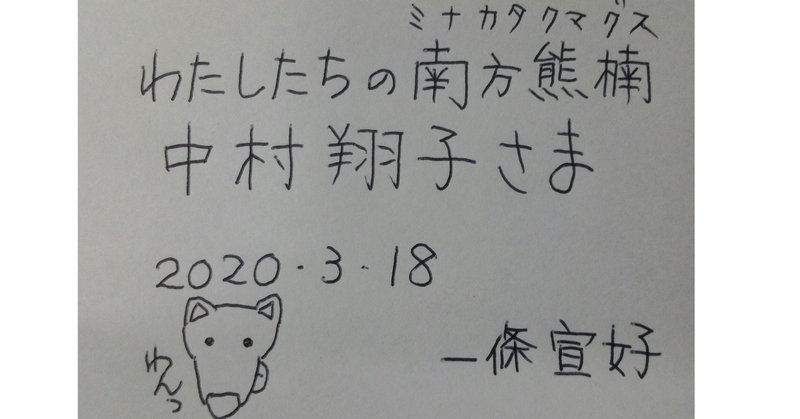 ミナカタクマグス
わたしたちの南方熊楠
中村翔子さま
2020・3・18
わんっ
一條宣好